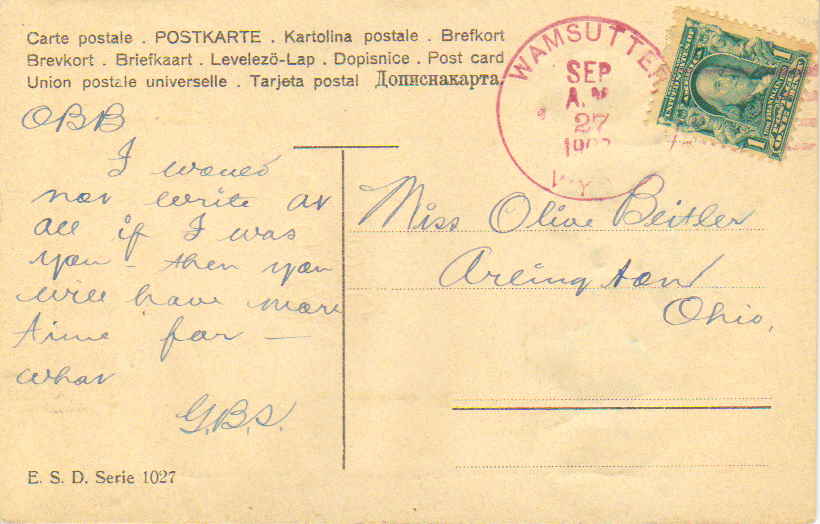 Carte postale . POSTKARTE . Kartolina postale . Brefkort
Brevkort . Briefkaart . Levelezö-Lap . Dopisnice . Post card
Union postale universelle . Tarjeta postal Дописнакарта.
WAMSUTTER
SEP
A.M
27
WY
1 1
OBB
I would
not write at
all if I was
you - then you
will have more
time for —
what
G.B.S.
Miss Olive Beitler
Arlington
Ohio,
E. S. D. Serie 1027